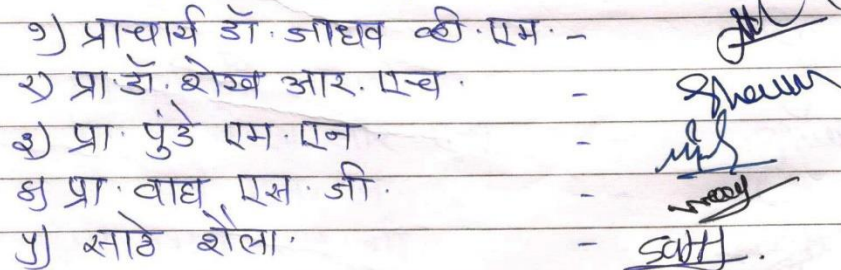 १) प्राचार्य डॉ. जाधव व्ही. एम. -
२) प्रा. डॉ. शेख आर. एच. -
३) प्रा. पुंडे एम. एन. -
४) प्रा. वाघ एस. जी. -
५) साठे शैला. -